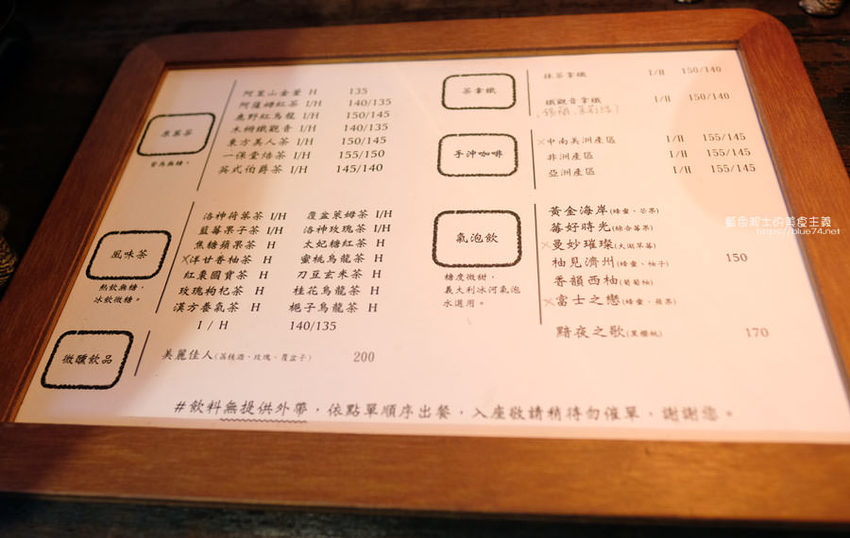 原葉茶
皆為無糖。
阿里山金萱 H 135
阿薩姆紅茶 I/H 140/135
鹿野紅烏龍 I/H 150/145
木柵鐵觀音 I/H 140/135
東方美人茶 I/H 150/145
一保堂焙茶 I/H 155/150
英式伯爵茶 I/H 145/140
風味茶
熱飲無糖、
冰飲微糖。
洛神荷葉茶 I/H 覆盆萊姆茶 I/H
藍莓果子茶 I/H 洛神玫瑰茶 I/H
焦糖蘋果茶 H 太妃糖紅茶 H
洋甘香柚茶 H 蜜桃烏龍茶 H
紅棗國寶茶 H 刀豆玄米茶 H
玫瑰枸杞茶 H 桂花烏龍茶 H
漢方養氣茶 H 梔子烏龍茶 H
I / H 140/135
微醺飲品
美麗佳人(荔枝酒、玫瑰、覆盆子) 200
茶拿鐵
抹茶拿鐵 I/H 150/140
鐵觀音拿鐵 I/H 150/140
手沖咖啡
中南美洲產區 I/H 155/145
非洲產區 I/H 155/145
亞洲產區 I/H 155/145
氣泡飲
糖度微甜,
義大利冰河氣泡
水選用。
黃金海岸(蜂蜜、芒果)
莓好時光(綜合莓果)
曼妙璀璨(大湖草莓)
柚見濟州(蜂蜜、柚子) 150
香韻西柚(葡萄柚)
富士之戀(蜂蜜、蘋果)
黯夜之歌(黑櫻桃) 170
#飲料無提供外帶,依點單順序出餐,入座敬請稍待勿催單,謝謝您。
藍色起士的美食主義
https://blue74.net